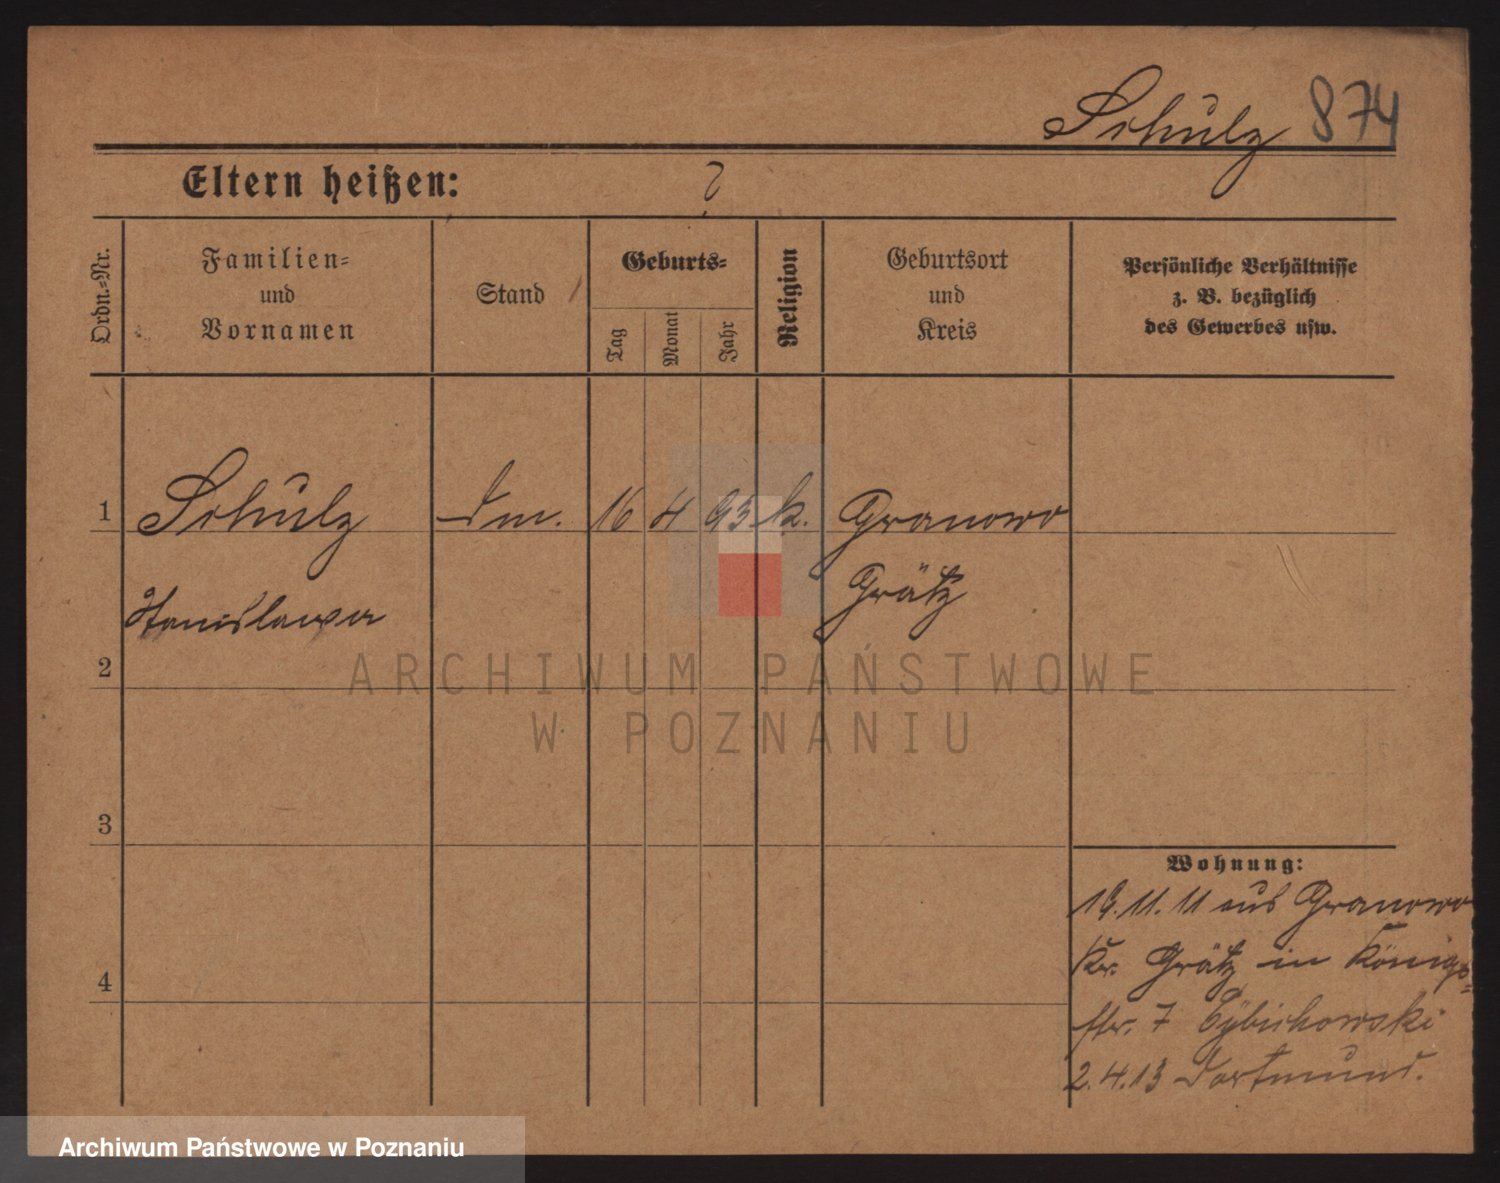 Schulz 874
Eltern heißen: ?
Ordn.-Nr.
Familien-
und
Vornamen
Stand
Geburts-
Tag
Monat
Jahr
Religion
Geburtsort
und
Kreis
Persönliche Verhältnisse
z. B. bezüglich
des Gewerbes usw.
1 Schulz 16 4 93 k. Granowo
Stanislawa Grätz
2
3
4
Wohnung:
19.11.11 aus Granowo
Kr. Grätz in Königs-
str. 7 Cybichowski
2.4.13 Dortmund.
ARCHIWUM PAŃSTWOWE
W POZNANIU
Archiwum Państwowe w Poznaniu